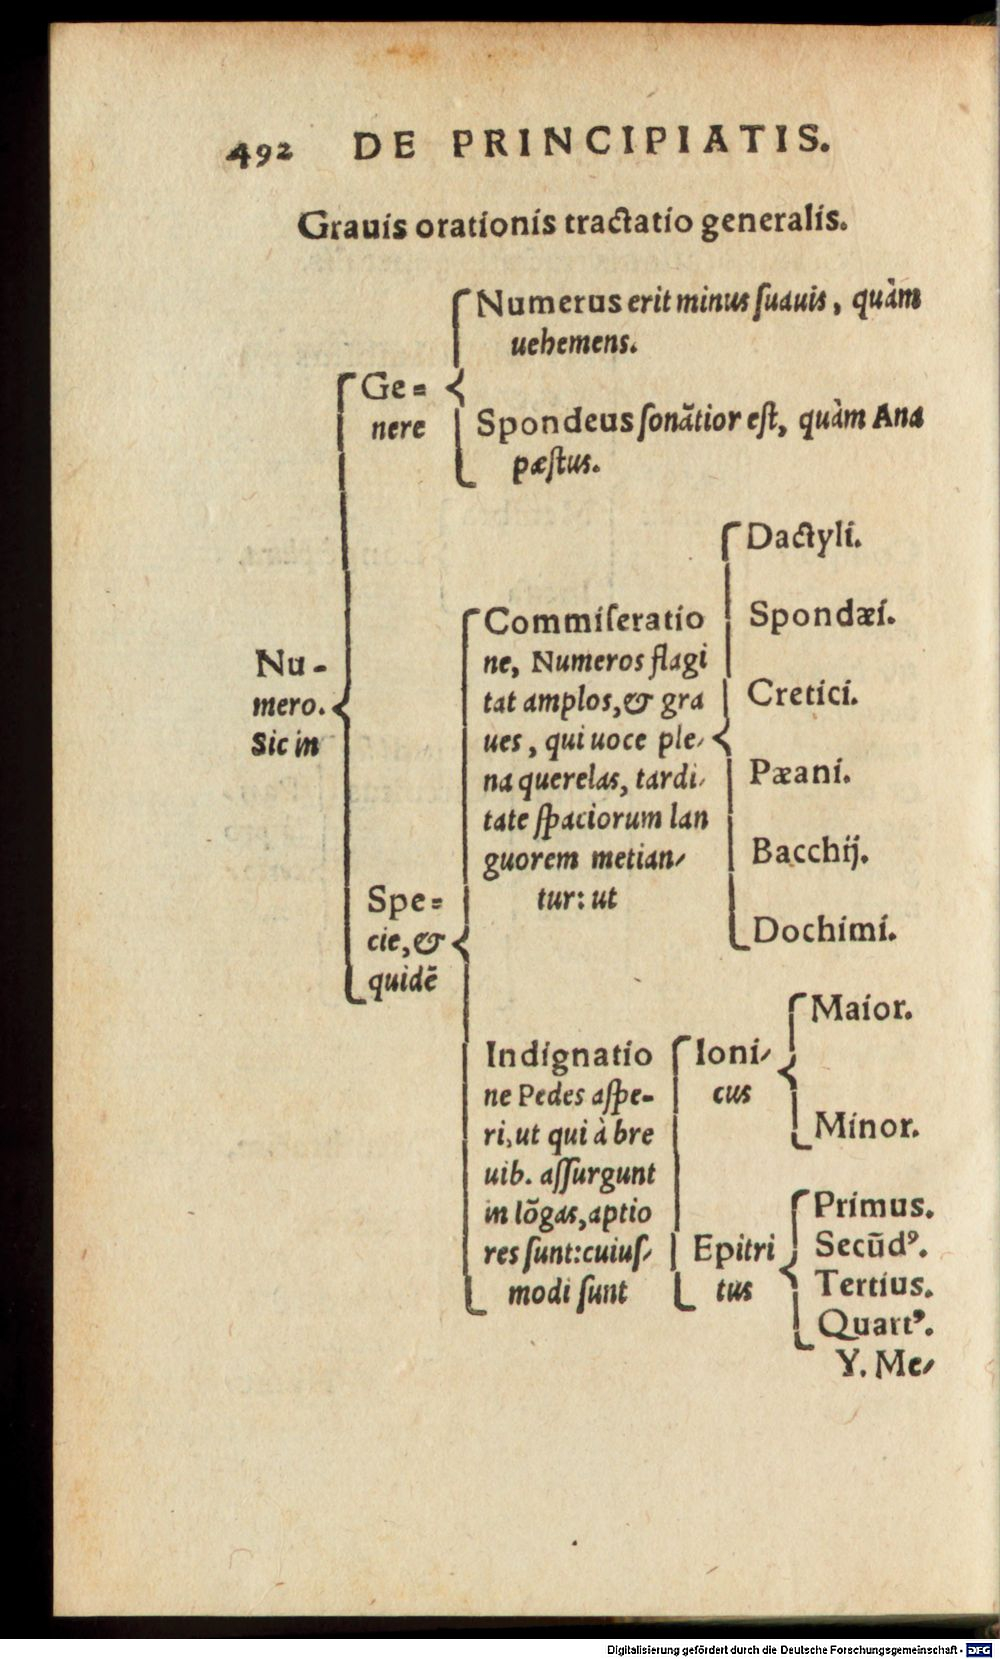 492 DE PRINCIPIATIS.
Grauis orationis tractatio generalis.
Nu-
mero.
Sic in
Ge=
nere
Numerus erit minus ſuauis, quàm
uehemens.
Spondeus ſonãtior eſt, quàm Ana
pæſtus.
Spe=
cie, &
quidẽ
Commiſeratio
ne, Numeros flagi
tat amplos, & gra
ues, qui uoce ple-
na querelas, tardi-
tate ſpaciorum lan
guorem metian-
tur: ut
Dactyli.
Spondæi.
Cretici.
Pæani.
Bacchij.
Dochimi.
Indignatio
ne Pedes aſpe-
ri, ut qui à bre
uib. aſſurgunt
in lõgas, aptio
res ſunt: cuiuſ-
modi ſunt
Ioni-
cus
Maior.
Minor.
Epitri
tus
Primus.
Secũdꝰ.
Tertius.
Quartꝰ.
Y. Me-
Digitalisierung gefördert durch die Deutsche Forschungsgemeinschaft - DFG